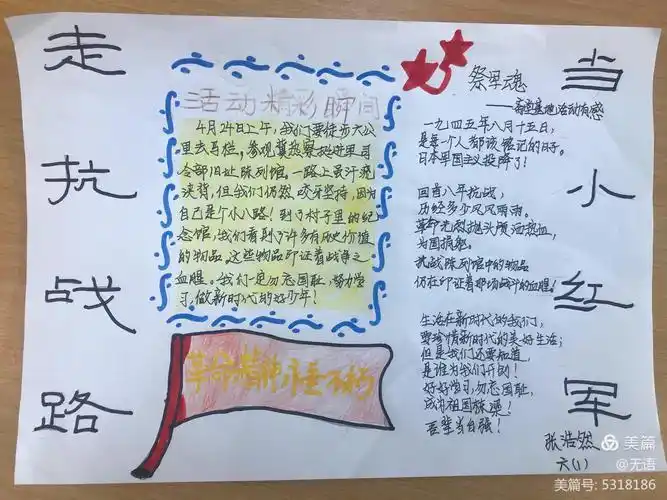 走抗战路
当小红军
活动精彩瞬间
4月24日上午,我们要徒步六公
里去马栏,参观冀热察挺进军司
令部旧址陈列馆。一路上虽汗流
浃背,但我们仍然咬牙坚持,因为
自己是个小八路!到了村子里的纪
念馆,我们看到了许多有历史价值
的物品,这些物品印证着战争之
血腥。我们一定勿忘国耻,努力学
习,做新时代的好少年!
革命精神永垂不朽
祭军魂
活动有感
一九四五年八月十五日,
是每一个人都该铭记的日子。
日本军国主义投降了!
回首八年抗战,
历经多少风风雨雨。
革命先烈抛头颅洒热血,
为国捐躯。
抗战陈列馆中的物品
仍在印证着那场战斗的血腥!
生活在新时代的我们,
要珍惜新时代的美好生活;
但是我们还要知道,
是谁为我们开创!
好好学习,勿忘国耻,
成为祖国栋梁!
吾辈当自强!
张浩然
六(1)
美篇
@无语
美篇号: 5318186